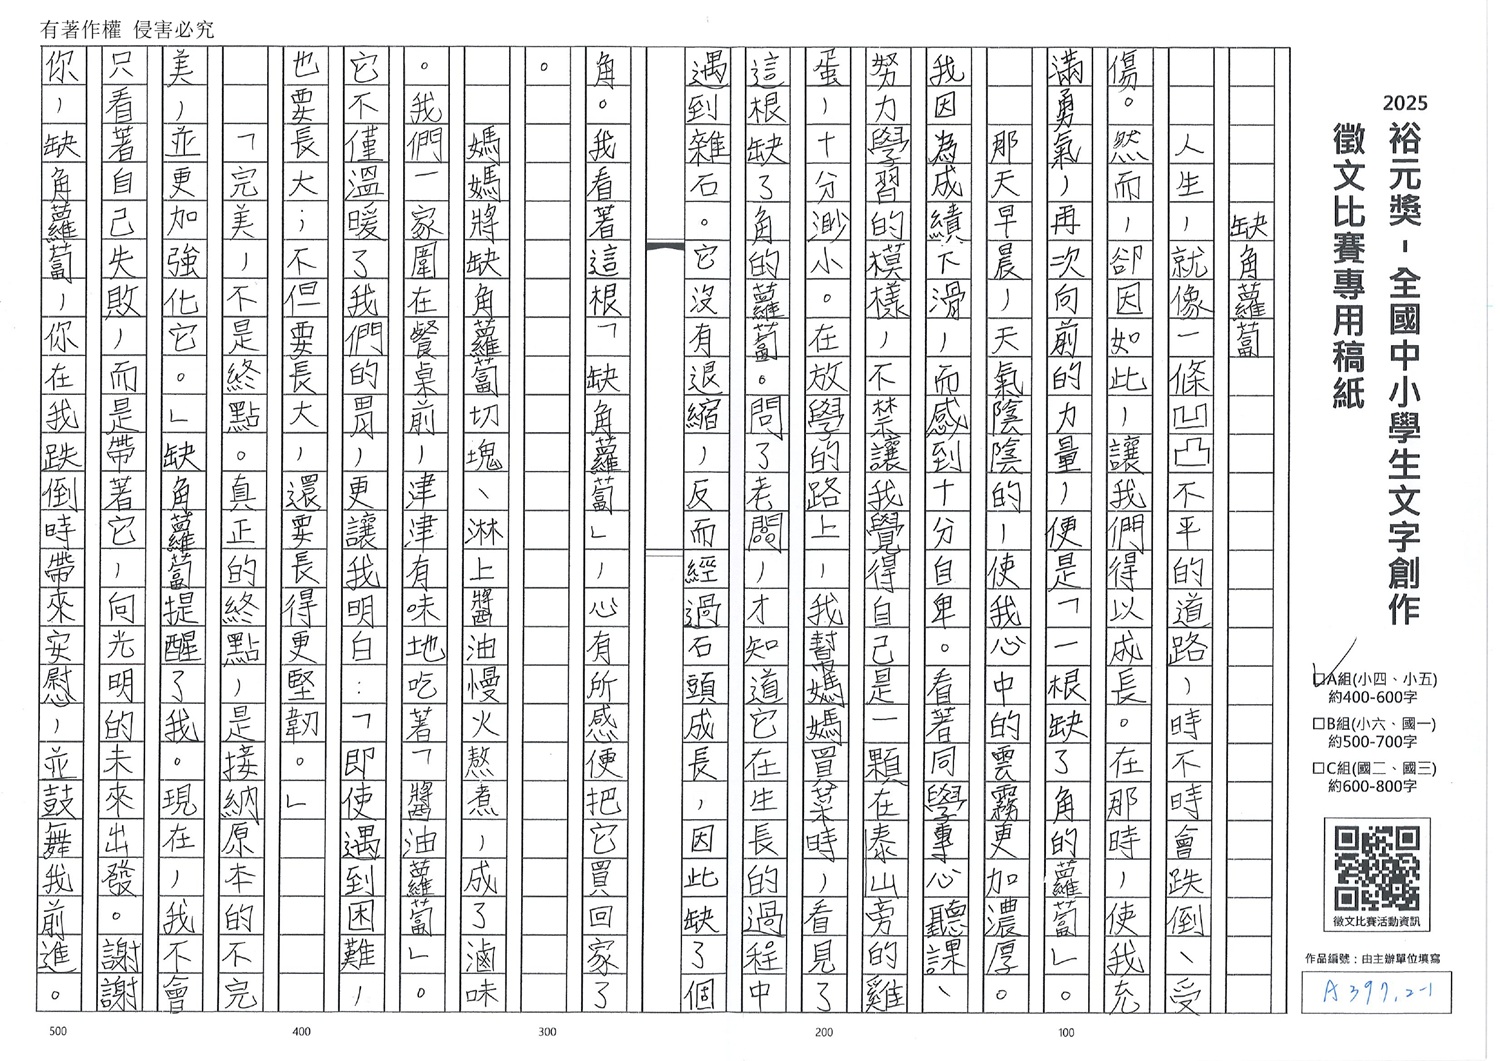 有著作權 侵害必究
2025
裕元獎-全國中小學生文字創作
徵文比賽專用稿紙
□A組(小四、小五)
約400-600字
□B組(小六、國一)
約500-700字
□C組(國二、國三)
約600-800字
徵文比賽活動資訊
作品編號：由主辦單位填寫
A397.2-1
缺角蘿蔔
人生，就像一條凹凸不平的道路，時不時會跌倒、受
傷。然而，卻因如此，讓我們得以成長。在那時，使我充
滿勇氣，再次向前的力量，便是「一根缺了角的蘿蔔」。
那天早晨，天氣陰陰的，使我心中的雲霧更加濃厚。
我因為成績下滑，而感到十分自卑。看著同學專心聽課、
努力學習的模樣，不禁讓我覺得自己是一顆在泰山旁的雞
蛋，十分渺小。在放學的路上，我幫媽媽買菜時，看見了
這根缺了角的蘿蔔。問了老闆，才知道它在生長的過程中
遇到雜石。它沒有退縮，反而經過石頭成長，因此缺了個
角。我看著這根「缺角蘿蔔」，心有所感便把它買回家了
。
媽媽將缺角蘿蔔切塊、淋上醬油慢火熬煮，成了滷味
。我們一家圍在餐桌前，津津有味地吃著「醬油蘿蔔」。
它不僅溫暖了我們的胃，更讓我明白：「即使遇到困難，
也要長大；不但要長大，還要長得更堅韌。」
「完美，不是終點。真正的終點，是接納原本的不完
美，並更加強化它。」缺角蘿蔔提醒了我。現在，我不會
只看著自己失敗，而是帶著它，向光明的未來出發。謝謝
你，缺角蘿蔔，你在我跌倒時帶來安慰，並鼓舞我前進。
100
200
300
400
500